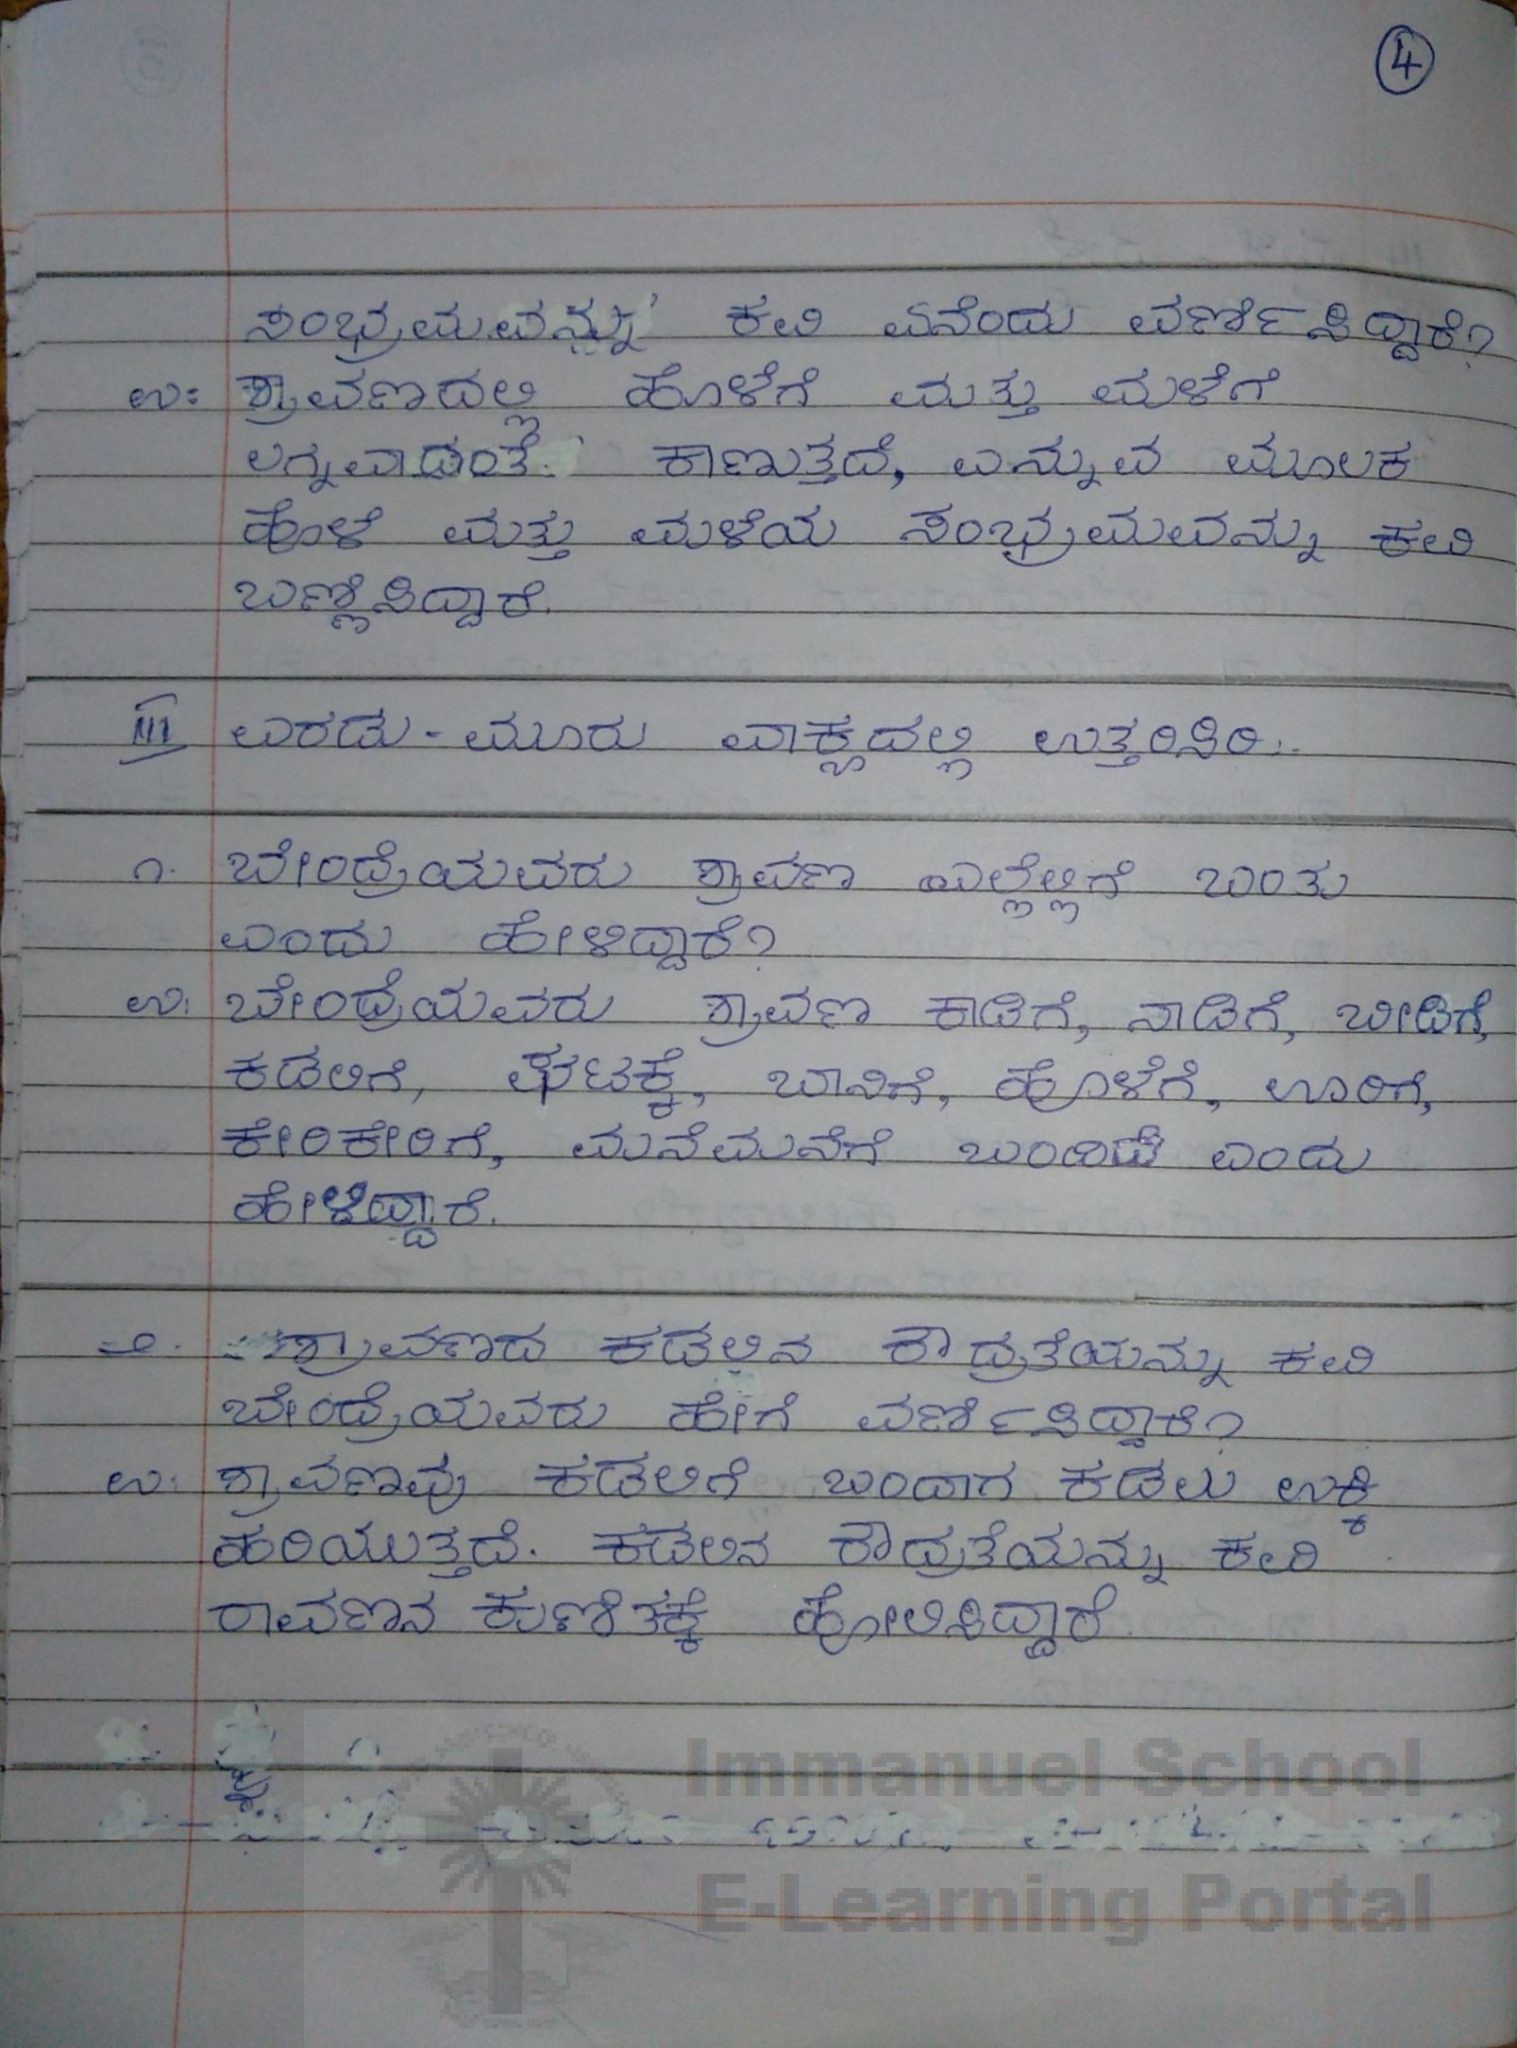 4
ಸಂಭ್ರಮವನ್ನು ಕವಿ ಏನೆಂದು ವರ್ಣಿಸಿದ್ದಾರೆ?
ಉ: ಶ್ರಾವಣದಲ್ಲಿ ಹೊಳೆಗೆ ಮತ್ತು ಮಳೆಗೆ
ಲಗ್ನವಾದಂತೆ ಕಾಣುತ್ತದೆ, ಎನ್ನುವ ಮೂಲಕ
ಹೊಳೆ ಮತ್ತು ಮಳೆಯ ಸಂಭ್ರಮವನ್ನು ಕವಿ
ಬಣ್ಣಿಸಿದ್ದಾರೆ.
III ಎರಡು - ಮೂರು ವಾಕ್ಯದಲ್ಲಿ ಉತ್ತರಿಸಿರಿ:-
೧. ಬೇಂದ್ರೆಯವರು ಶ್ರಾವಣ ಎಲ್ಲೆಲ್ಲಿಗೆ ಬಂತು
ಎಂದು ಹೇಳಿದ್ದಾರೆ?
ಉ: ಬೇಂದ್ರೆಯವರು ಶ್ರಾವಣ ಕಾಡಿಗೆ, ನಾಡಿಗೆ, ಬೀಡಿಗೆ,
ಕಡಲಿಗೆ, ಘಟಕ್ಕೆ, ಬಾನಿಗೆ, ಹೊಳೆಗೆ, ಊರಿಗೆ,
ಕೇರಿಕೇರಿಗೆ, ಮನೆಮನೆಗೆ ಬಂದಿದೆ ಎಂದು
ಹೇಳಿದ್ದಾರೆ.
೨. ಶ್ರಾವಣದ ಕಡಲಿನ ರೌದ್ರತೆಯನ್ನು ಕವಿ
ಬೇಂದ್ರೆಯವರು ಹೇಗೆ ವರ್ಣಿಸಿದ್ದಾರೆ?
ಉ: ಶ್ರಾವಣವು ಕಡಲಿಗೆ ಬಂದಾಗ ಕಡಲು ಉಕ್ಕಿ
ಹರಿಯುತ್ತದೆ. ಕಡಲಿನ ರೌದ್ರತೆಯನ್ನು ಕವಿ
ರಾವಣನ ಕುಣಿತಕ್ಕೆ ಹೋಲಿಸಿದ್ದಾರೆ.
Immanuel School
E-Learning Portal